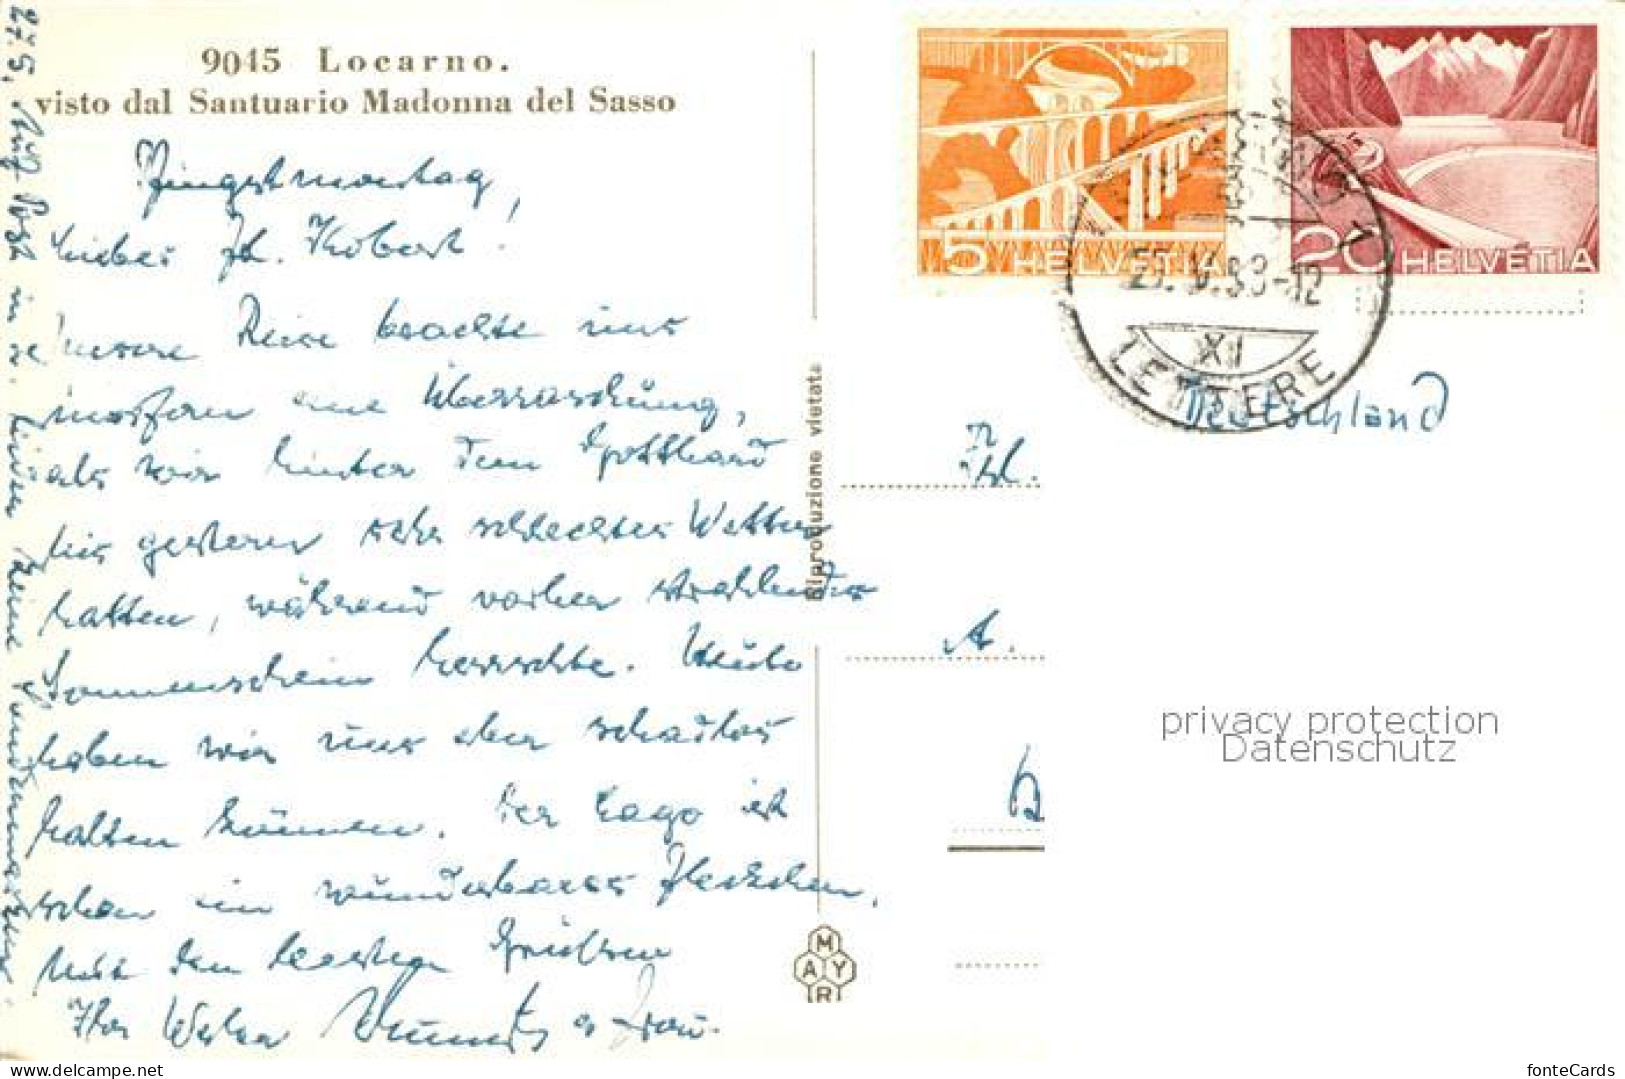 9045 Locarno.
visto dal Santuario Madonna del Sasso
Pfingstmontag,
Liebes Frl. Kobert!
Unsere Reise brachte uns
insofern eine Überraschung,
als wir hinter dem Gotthard
bis gestern sehr schlechtes Wetter
hatten, während vorher strahlender
Sonnenschein herrschte. Heute
haben wir uns aber schadlos
halten können. Der Lago ist
schon ein wunderbares Fleckchen.
Mit den besten Grüßen
Ihr Weber u. Frau.
27.5. Auf Post in
Riproduzione vietata
MAYR
5 HELVETIA
20 HELVETIA
1
-12
XII
LETTERE
Deutschland
Frl.
A.
privacy protection
Datenschutz
fonteCards